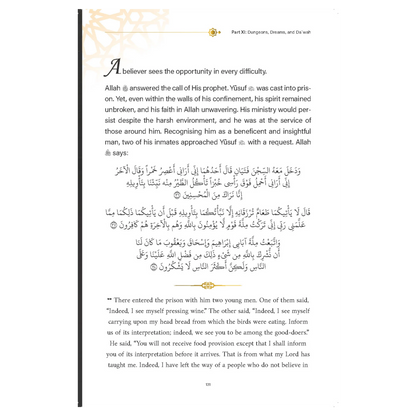 Part XI: Dungeons, Dreams, and Da'wah
A believer sees the opportunity in every difficulty.
Allah ﷻ answered the call of His prophet. Yūsuf ؑ was cast into pris-
on. Yet, even within the walls of his confinement, his spirit remained
unbroken, and his faith in Allah unwavering. His ministry would per-
sist despite the harsh environment, and he was at the service of
those around him. Recognising him as a beneficent and insightful
man, two of his inmates approached Yūsuf ؑ with a request. Allah
ﷻ says:
وَدَخَلَ مَعَهُ السِّجْنَ فَتَيَانِ قَالَ أَحَدُهُمَا إِنِّي أَرَانِي أَعْصِرُ خَمْرًا وَقَالَ الْآخَرُ
إِنِّي أَرَانِي أَحْمِلُ فَوْقَ رَأْسِي خُبْزًا تَأْكُلُ الطَّيْرُ مِنْهُ نَبِّئْنَا بِتَأْوِيلِهِ
إِنَّا نَرَاكَ مِنَ الْمُحْسِنِينَ
قَالَ لَا يَأْتِيكُمَا طَعَامٌ تُرْزَقَانِهِ إِلَّا نَبَّأْتُكُمَا بِتَأْوِيلِهِ قَبْلَ أَن يَأْتِيَكُمَا ذَٰلِكُمَا مِمَّا
عَلَّمَنِي رَبِّي إِنِّي تَرَكْتُ مِلَّةَ قَوْمٍ لَّا يُؤْمِنُونَ بِاللَّهِ وَهُم بِالْآخِرَةِ هُمْ كَافِرُونَ
وَاتَّبَعْتُ مِلَّةَ آبَائِي إِبْرَاهِيمَ وَإِسْحَاقَ وَيَعْقُوبَ مَا كَانَ لَنَا
أَن نُّشْرِكَ بِاللَّهِ مِن شَيْءٍ ذَٰلِكَ مِن فَضْلِ اللَّهِ عَلَيْنَا وَعَلَى
النَّاسِ وَلَٰكِنَّ أَكْثَرَ النَّاسِ لَا يَشْكُرُونَ
There entered the prison with him two young men. One of them said,
"Indeed, I see myself pressing wine." The other said, "Indeed, I see myself
carrying upon my head bread from which the birds were eating. Inform
us of its interpretation; indeed, we see you to be among the good-doers."
He said, "You will not receive food provision except that I shall inform
you of its interpretation before it arrives. That is from what my Lord has
taught me. Indeed, I have left the way of a people who do not believe in